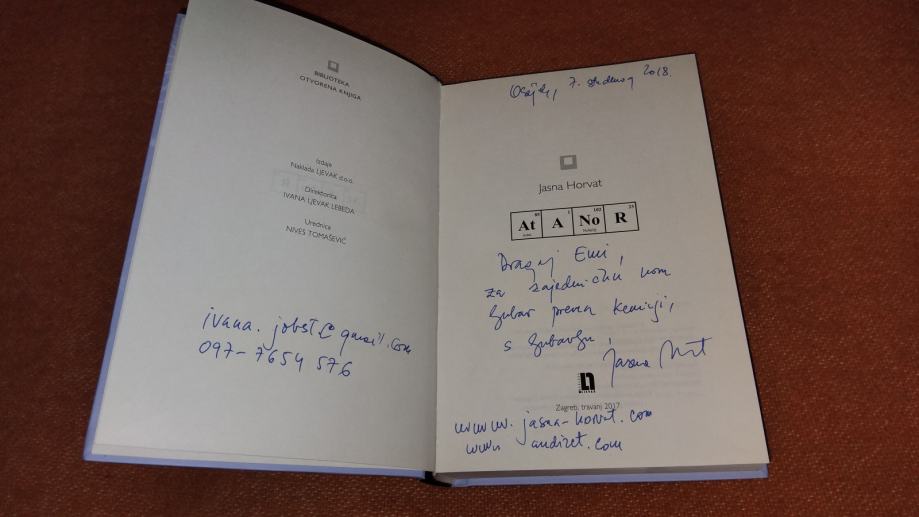 BIBLIOTEKA
OTVORENA KNJIGA
Izdaje
Naklada LJEVAK d.o.o.
Direktorica
IVANA LJEVAK LEBEDA
Urednica
NIVES TOMAŠEVIĆ
ivana.jobst@gmail.com
097-7654 576
Osijek, 7. studenog 2018.
Jasna Horvat
85 1 102 25
At A No R
Dragoj Emi,
za zajedničku nam
ljubav prema kemiji,
s ljubavlju,
Jasna Horvat
Zagreb, travanj 2017.
www.jasna-horvat.com
www